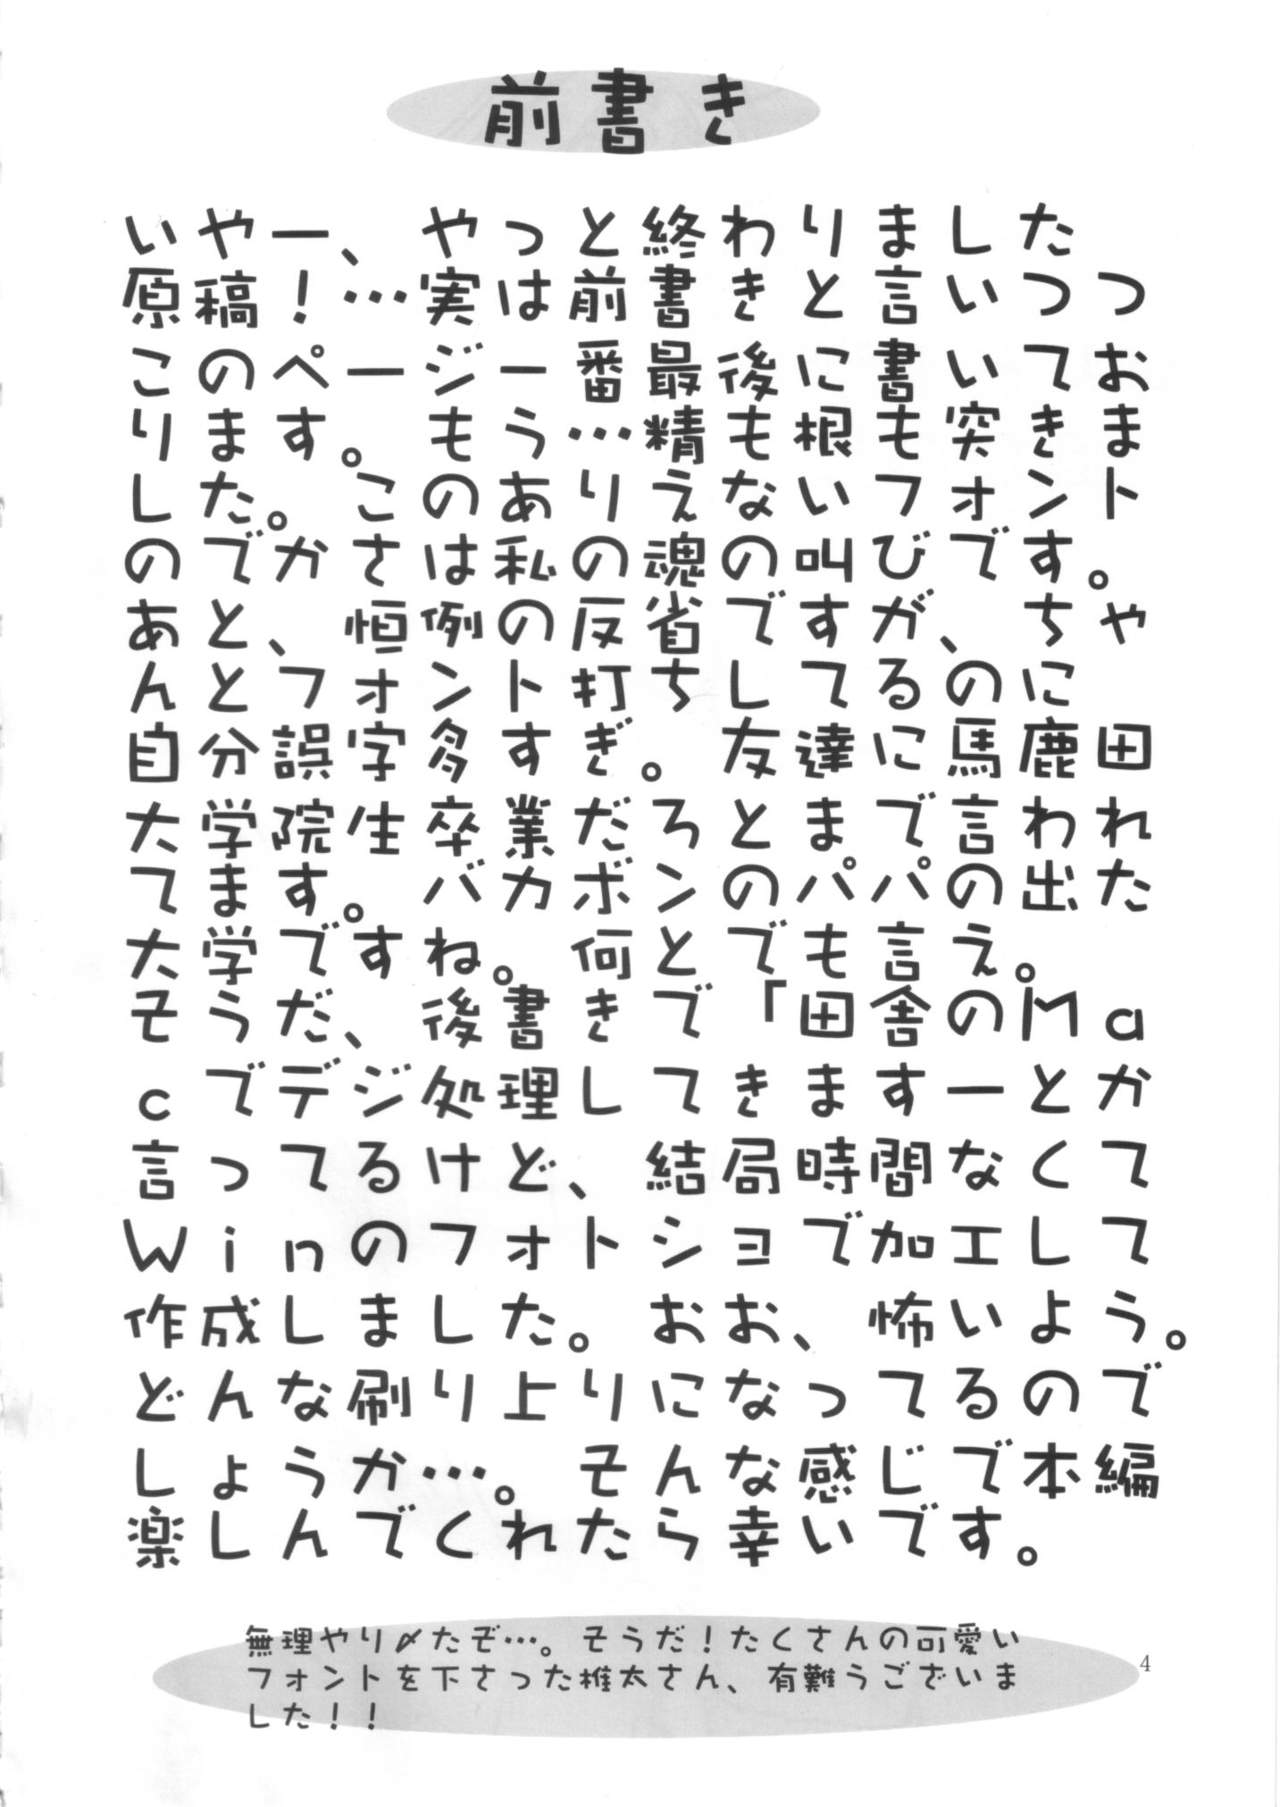 前書き
いやー、やっと終わりました
原稿！…実は前書きと言いつつ
このページ一番最後に書いてお
ります。もう…精も根も突きま
した。このありえないフォント
のでかさは私の魂の叫びです。
あと、恒例の反省ですが、ちゃ
んとフォント打ちしてるのに
自分と誤字多すぎ。友達に馬鹿田
大学院生卒業だろとまで言われ
てます。バカボンのパパの出た
大学ですね。何とでも言え。
そうだ、後書きで「田舎のMa
cでデジ処理してきますーとか
言ってるけど、結局時間なくて
Winのフォトショで加工して
作成しました。おお、怖いよう。
どんな刷り上りになってるので
しょうか…。そんな感じで本編
楽しんでくれたら幸いです。
無理やり〆たぞ…。そうだ！たくさんの可愛い
フォントを下さった椎太さん、有難うございま
した！！
4